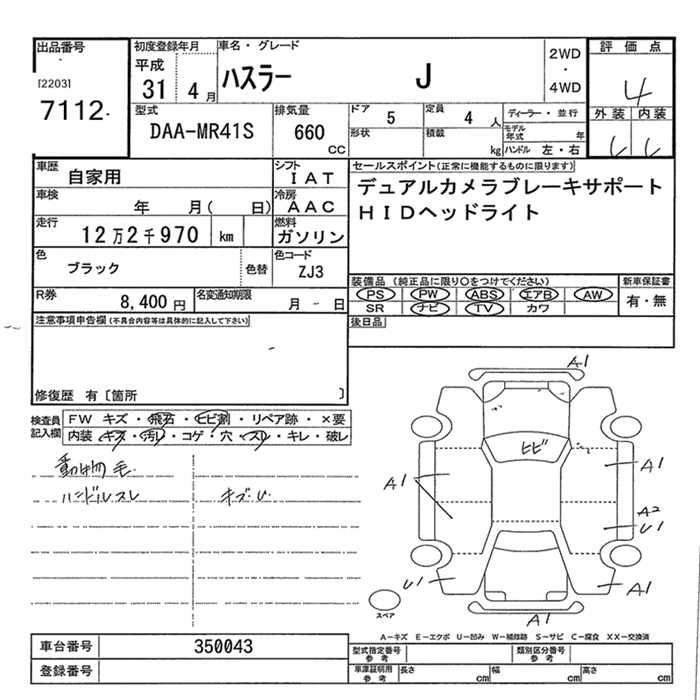 出品番号
[2203]
7112
初度登録年月
平成
31 4 月
車名・グレード
ハスラー J
2WD
・
4WD
評価点
4
外装 内装
型式
DAA-MR41S
排気量
660
CC
ドア 5
定員 4 人
ディーラー・並行
形状
積載 kg
モデル年式 年
ハンドル 左・右
車歴
自家用
シフト
IAT
車検
年 月( 日)
冷房
AAC
走行
12万2千970 km
燃料
ガソリン
色
ブラック
色替
色コード
ZJ3
R券
8,400 円
名変通知期限
月 - 日
セールスポイント(正常に機能するものに限ります)
デュアルカメラブレーキサポート
HIDヘッドライト
装備品 (純正品に限り○をつけてください)
PS PW ABS エアB AW
SR ナビ TV カワ
新車保証書
有・無
後日品
注意事項申告欄(不具合内容等は具体的に記入して下さい)
修復歴 有〔箇所 〕
検査員
記入欄
FW キズ・飛石・ヒビ割・リペア跡・×要
内装・キズ・汚レ・コゲ・穴・スレ・キレ・破レ
動物毛
ハンドルスレ
キズU
A1
ヒビ
A1
A1
A2
U1
U1
A1
A1
スペア
A―キズ E―エクボ U―凹み W―補修跡 S―サビ C―腐食 XX―交換済
車台番号
350043
登録番号
型式指定番号
参考
類別区分番号
参考
車庫証明用
参考
長さ cm
幅 cm
高さ cm